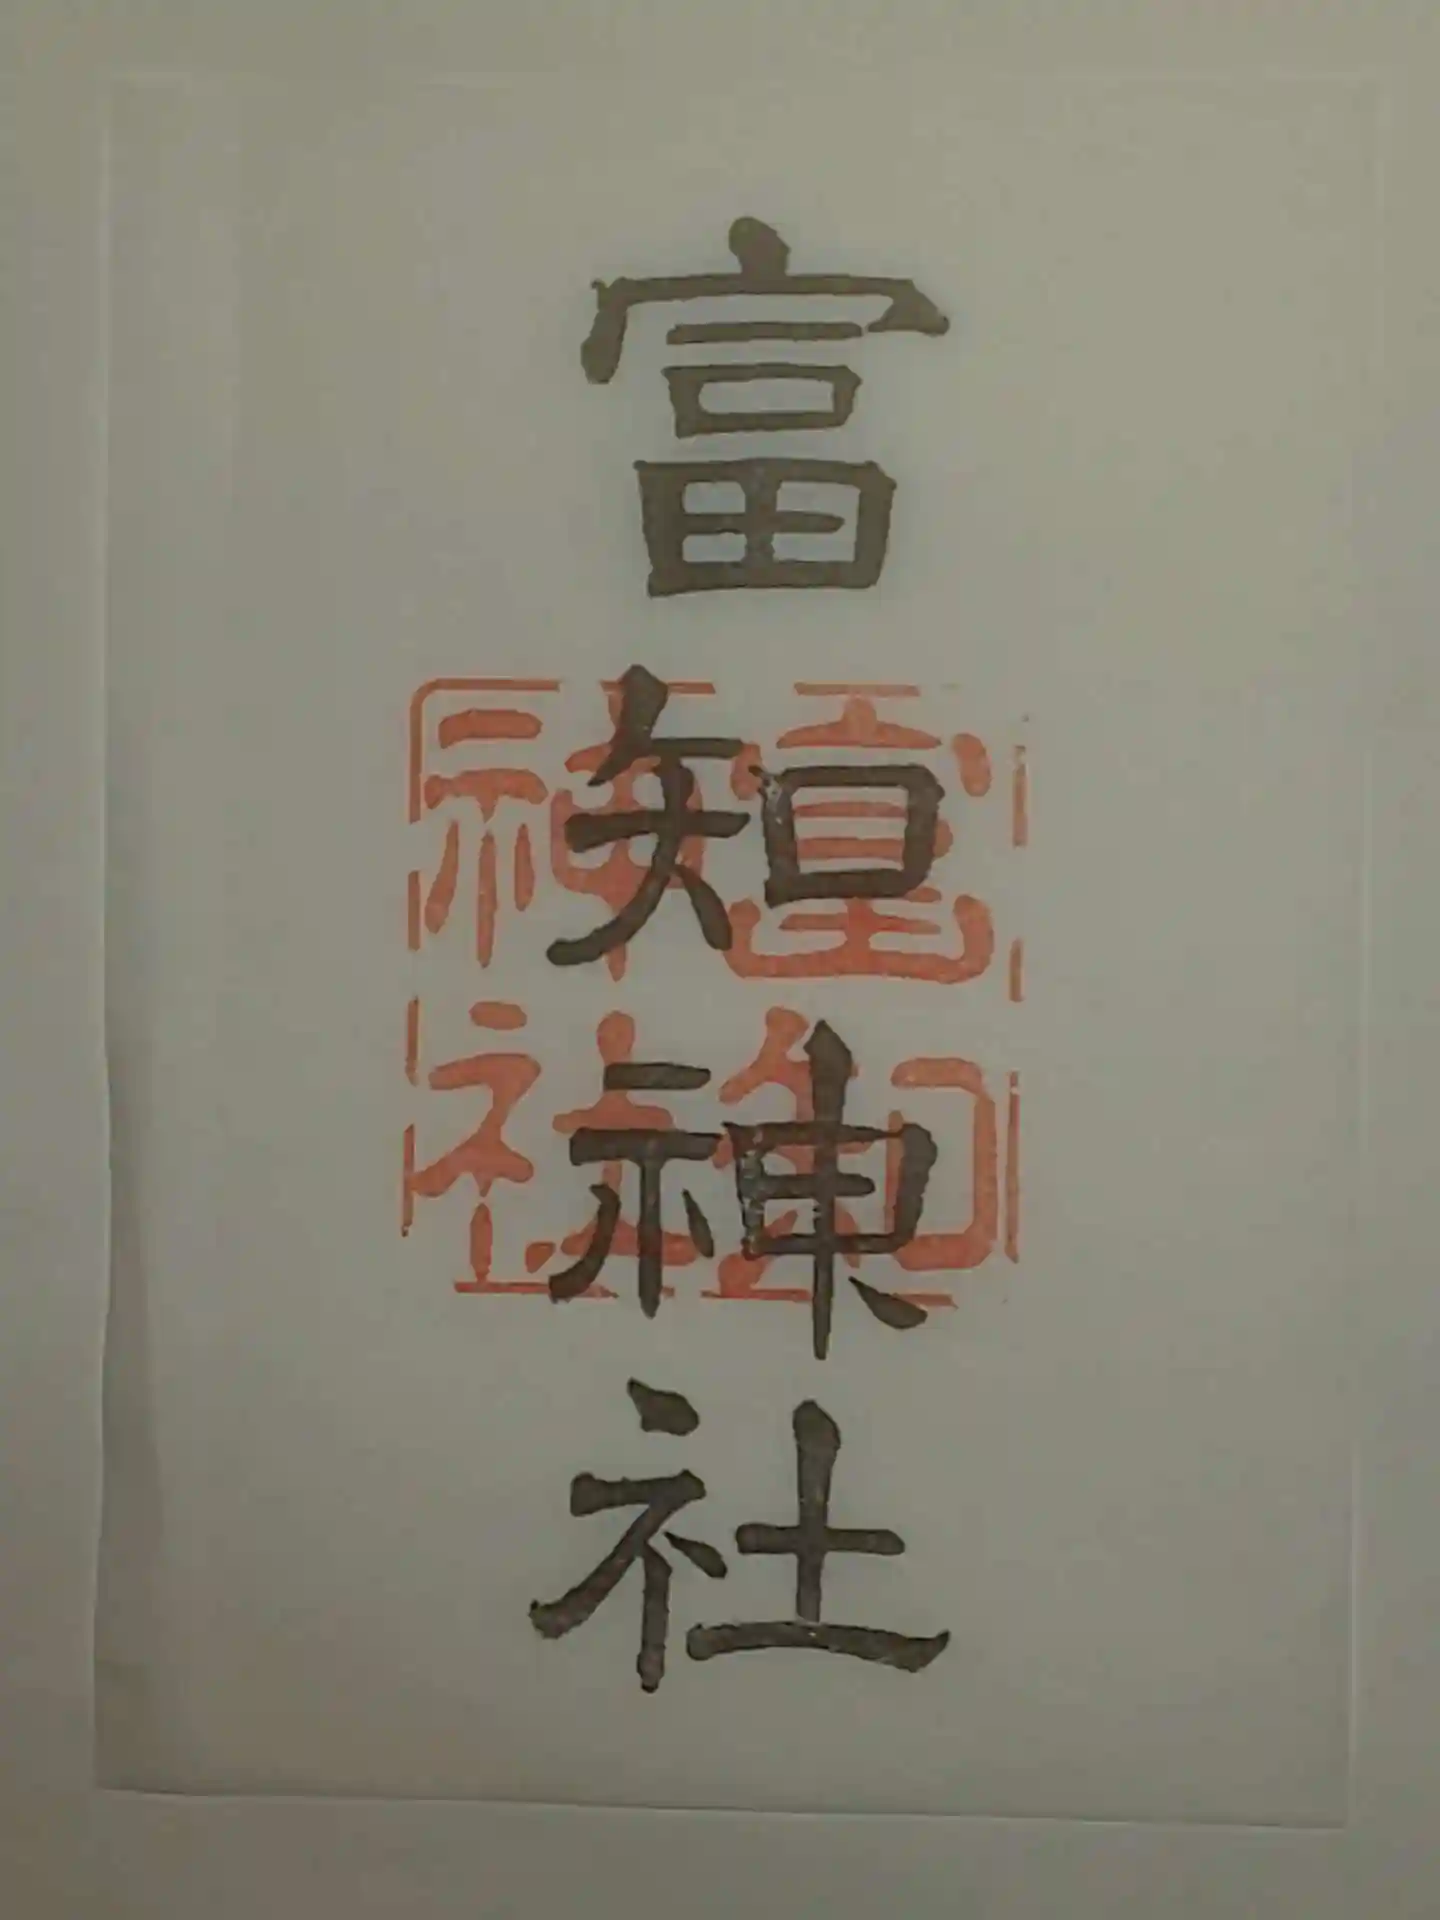 富知神社
富知神社